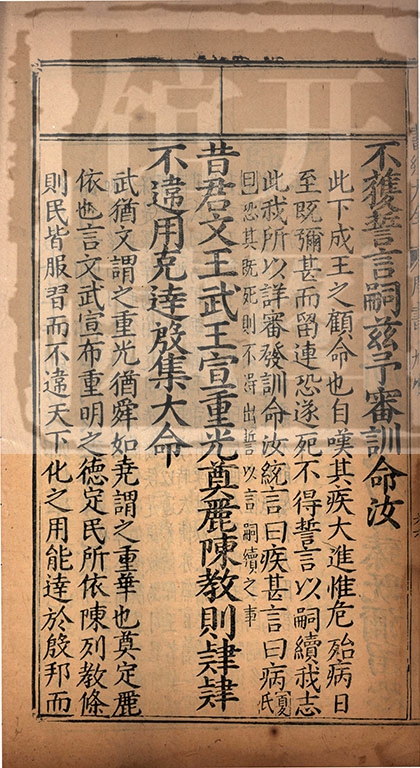 不獲誓言嗣茲予審訓命汝
此下成王之顧命也自嘆其疾大進惟危殆病日
至既彌甚而留連恐遂死不得誓言以嗣續我志
此我所以詳審發訓命汝統言曰疾甚言曰病夏氏
曰恐其既死則不得出誓以言嗣續之事
昔君文王武王宣重光奠麗陳教則肄肄
不違用克達殷集大命
武猶文謂之重光猶舜如堯謂之重華也奠定麗
依也言文武宣布重明之德定民所依陳列教條
則民皆服習而不違天下化之用能達於殷邦而